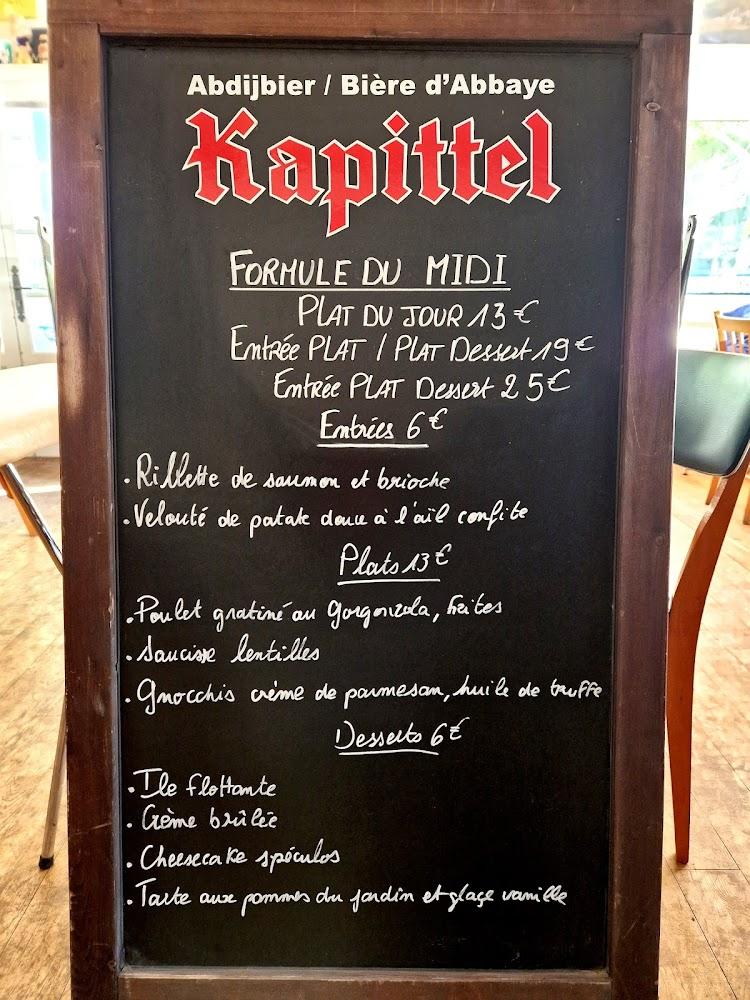 Abdijbier / Bière d'Abbaye
Kapittel
FORMULE DU MIDI
PLAT DU JOUR 13 €
Entrée PLAT / PLAT Dessert 19 €
Entrée PLAT Dessert 25 €
Entrées 6 €
. Rillette de saumon et brioche
. Velouté de patate douce à l'ail confite
Plats 13 €
. Poulet gratiné au gorgonzola, frites
. Saucisse lentilles
. Gnocchis crème de parmesan, huile de truffe
Desserts 6 €
. Ile flottante
. Crème brûlée
. Cheesecake spéculos
. Tarte aux pommes du jardin et glaçe vanille